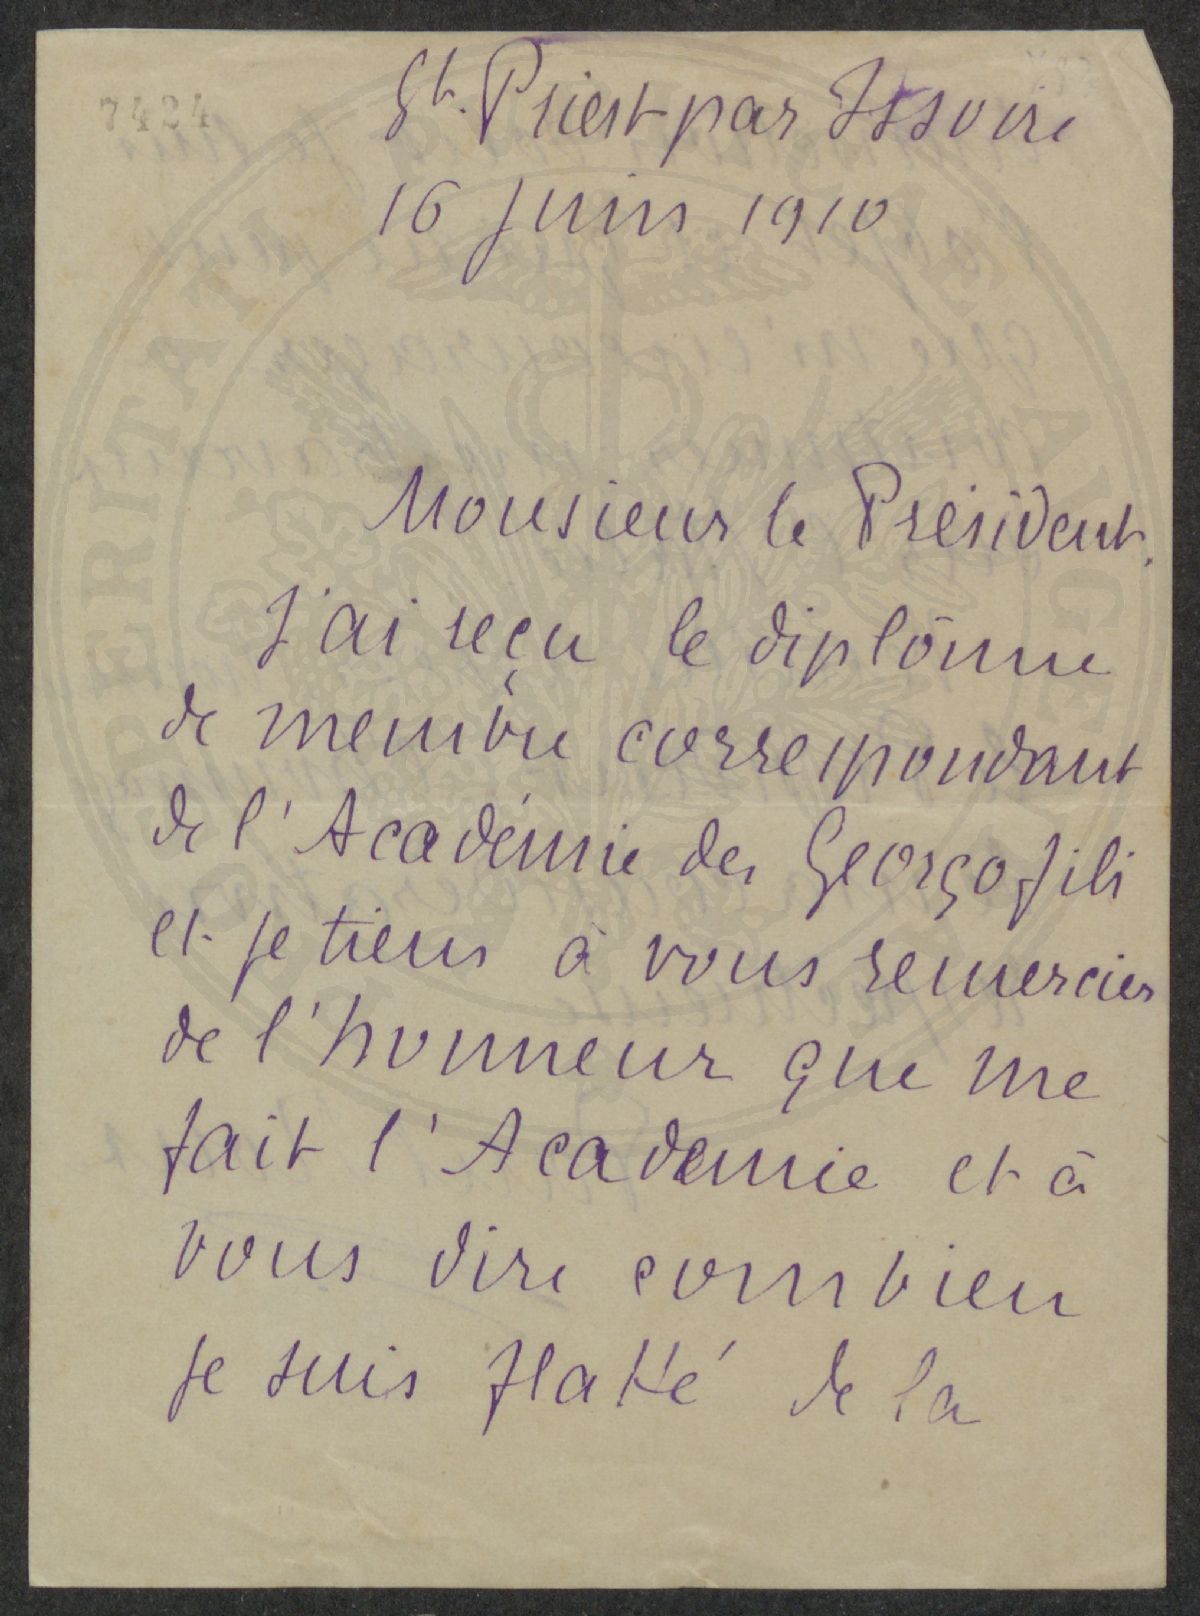 7424
St. Priest par Issoire
16 juin 1910
Monsieur le Président.
J'ai reçu le diplôme
de membre correspondant
de l'Académie des Georgofili
et je tiens à vous remercier
de l'honneur que me
fait l'Academie et à
vous dire combien
je suis flatté de la